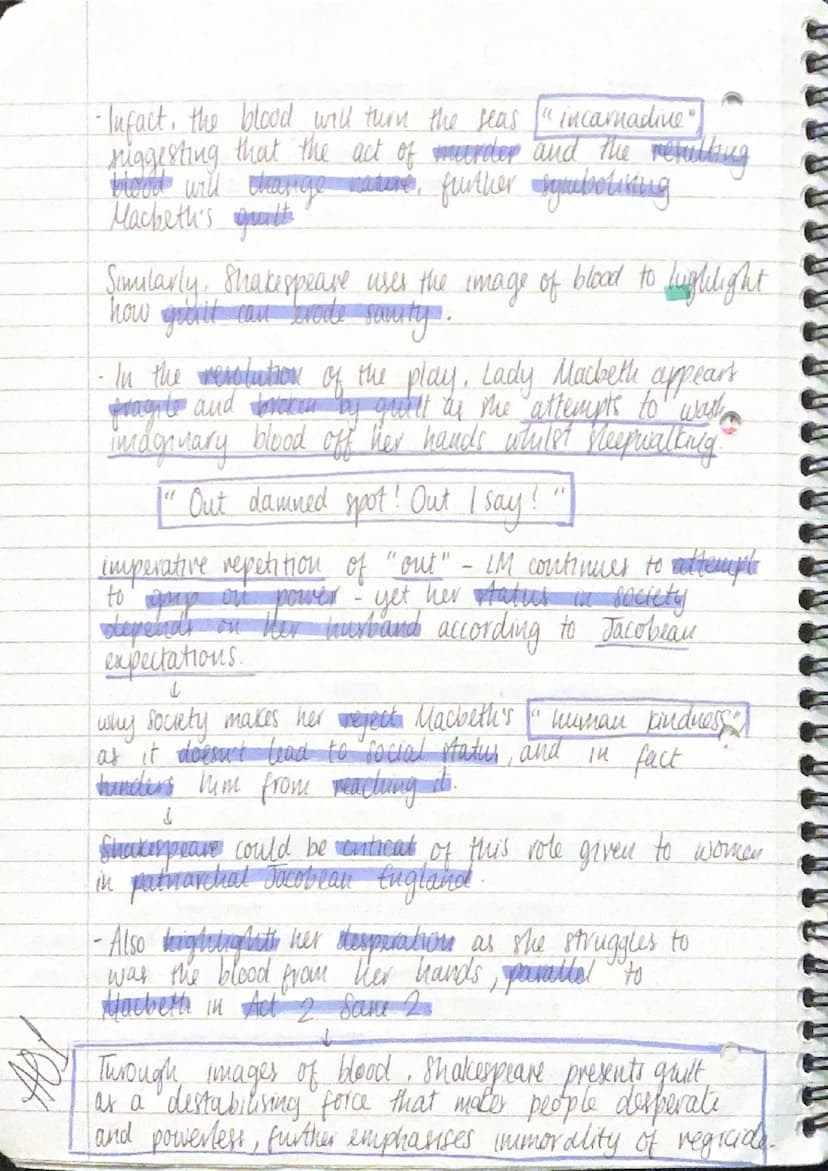 - Infact, the blood will turn the seas "incarnadine"
suggesting that the act of murder and the resulting
blood will change nature, further symbolising
Macbeth's guilt
Similarly, Shakespeare uses the image of blood to highlight
how guilt can erode sanity.
- In the resolution of the play, Lady Macbeth appears
fragile and broken by guilt as she attempts to wash
imaginary blood off her hands whilst sleepwalking.
"Out damned spot! Out I say!"
imperative repetition of "out" - LM continues to attempt
to grip on power - yet her status in society
depends on her husband according to Jacobean
expectations.
↓
why society makes her reject Macbeth's "human kindness"
as it doesn't lead to social status, and in fact
hinders him from reaching it.
↓
Shakespeare could be critical of this role given to women
in patriarchal Jacobean England.
- Also highlights her desperation as she struggles to
was the blood from her hands, parallel to
Macbeth in Act 2 Scene 2
↓
AO1
Through images of blood, Shakespeare presents guilt
as a destabilising force that makes people desperate
and powerless, further emphasises immorality of regicide.